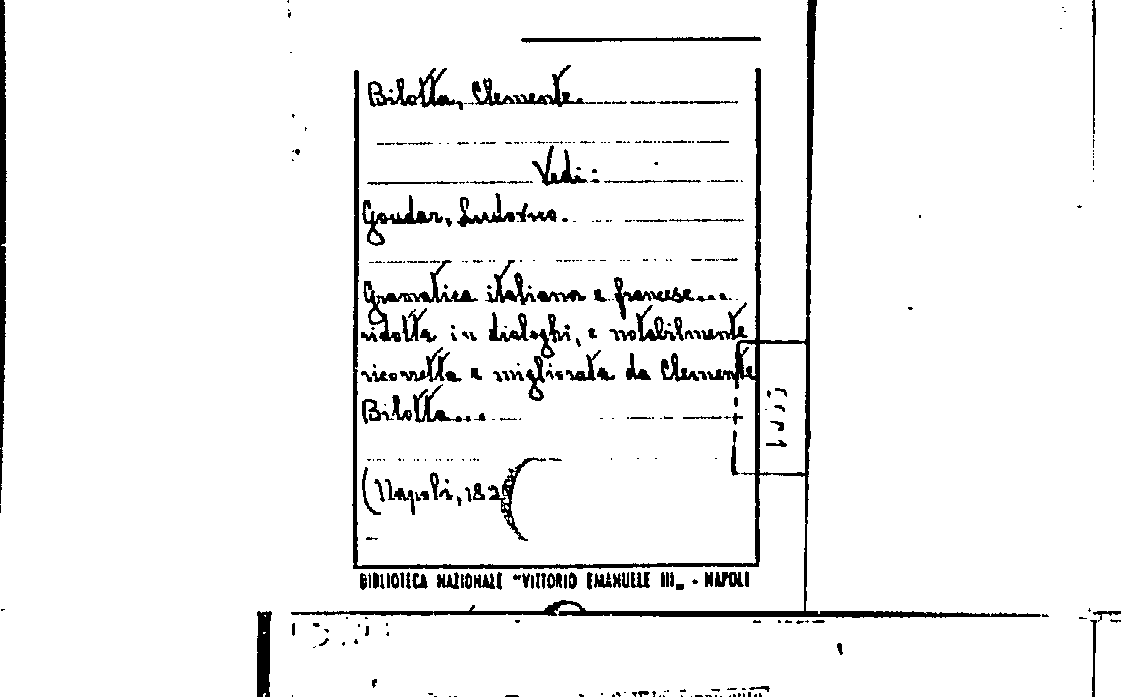 Bilotta, Clemente.
Vedi:
Goudar, Ludovico.
Gramatica italiana e francese...
ridotta in dialoghi, e notabilmente
ricorretta e migliorata da Clemente
Bilotta...
(Napoli,
BIBLIOTECA NAZIONALE "VITTORIO EMANUELE III„ - NAPOLI